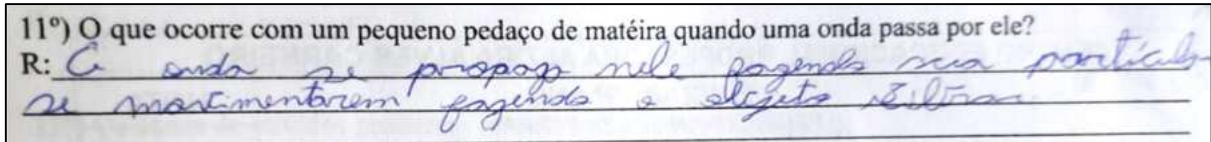 11º) O que ocorre com um pequeno pedaço de matéira quando uma onda passa por ele?
R: A onda se propaga nele fazendo sua partícula
se movimentarem fazendo o objeto vibrar